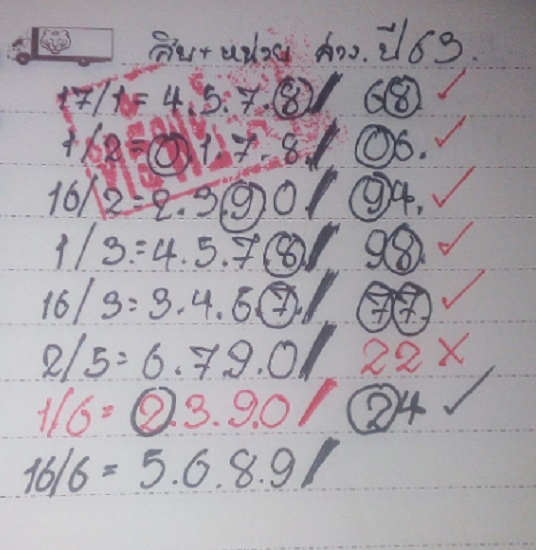 สิบ+หน่วย ล่าง. ปี 63.
17/1= 4.5.7.8/ 68 ✓
1/2=0.1.7.8/ 06. ✓
16/2=2.3.9.0./ 94. ✓
1/3=4.5.7.8/ 98. ✓
16/3=3.4.6.7./ 77. ✓
2/5= 6.79.0/ 22 ✗
1/6= 2.3.9.0/ 24 ✓
16/6= 5.6.8.9/